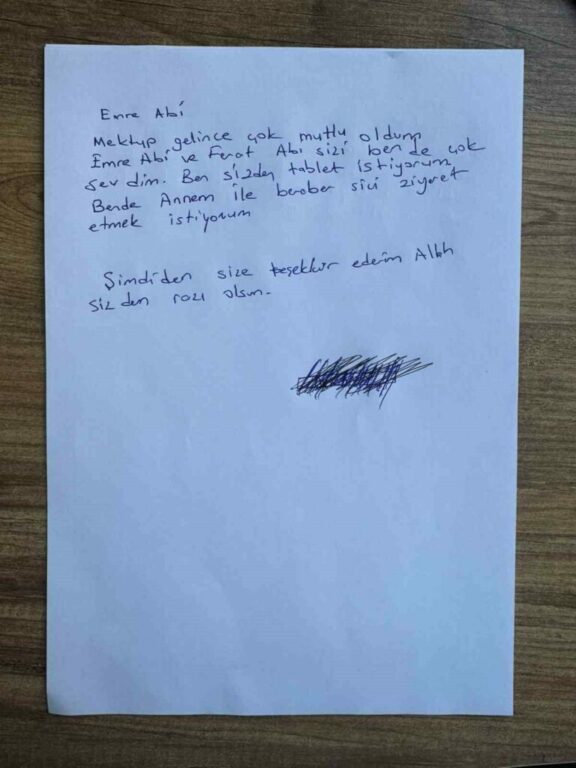 Emre Abi
Mektup gelince çok mutlu oldum
Emre Abi ve Ferat Abi sizi ben de çok
sev dim. Ben sizden tablet istiyorum
Bende Annem ile beraber sizi ziyaret
etmek istiyorum
Şimdiden size teşekkür ederim Allah
siz den razı olsun.